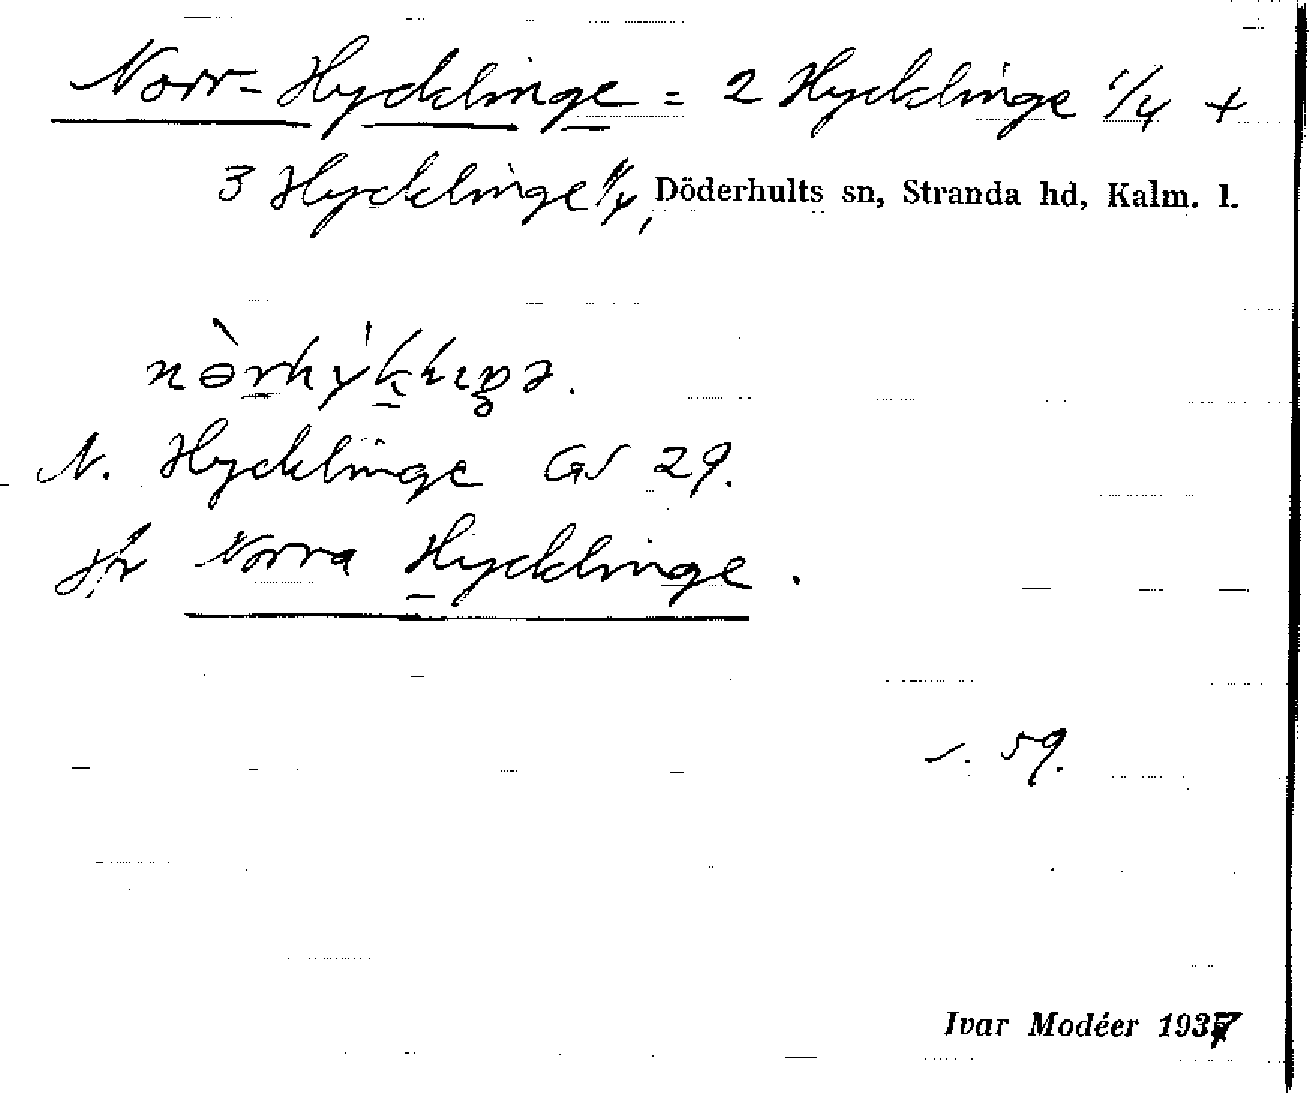 Norr-Hycklinge = 2 Hycklinge 1/4 +
3 Hycklinge 1/4, Döderhults sn, Stranda hd, Kalm. l.
N. Hycklinge GS 29.
Norra Hycklinge.
s. 59.
Ivar Modéer 1937